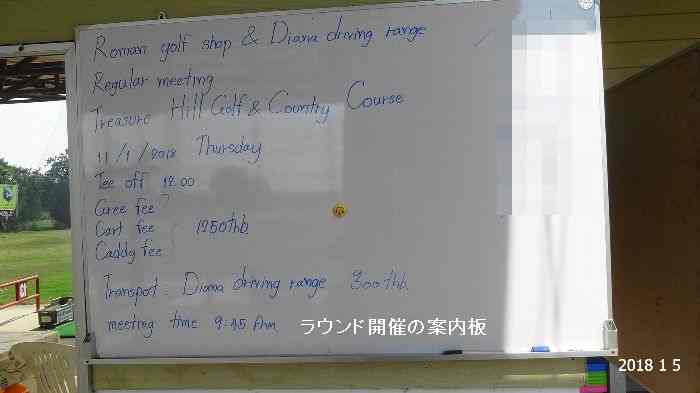 Roman golf shop & Diana driving range
Regular meeting
Treasure Hill Golf & Country Course
11/1/2018 Thursday
Tee off 12.00
Gree fee
Cart fee 1250thb.
Caddy fee
Transpost : Diana driving range 300thb.
meeting time 9:45 Am
ラウンド開催の案内板
2018 1 5